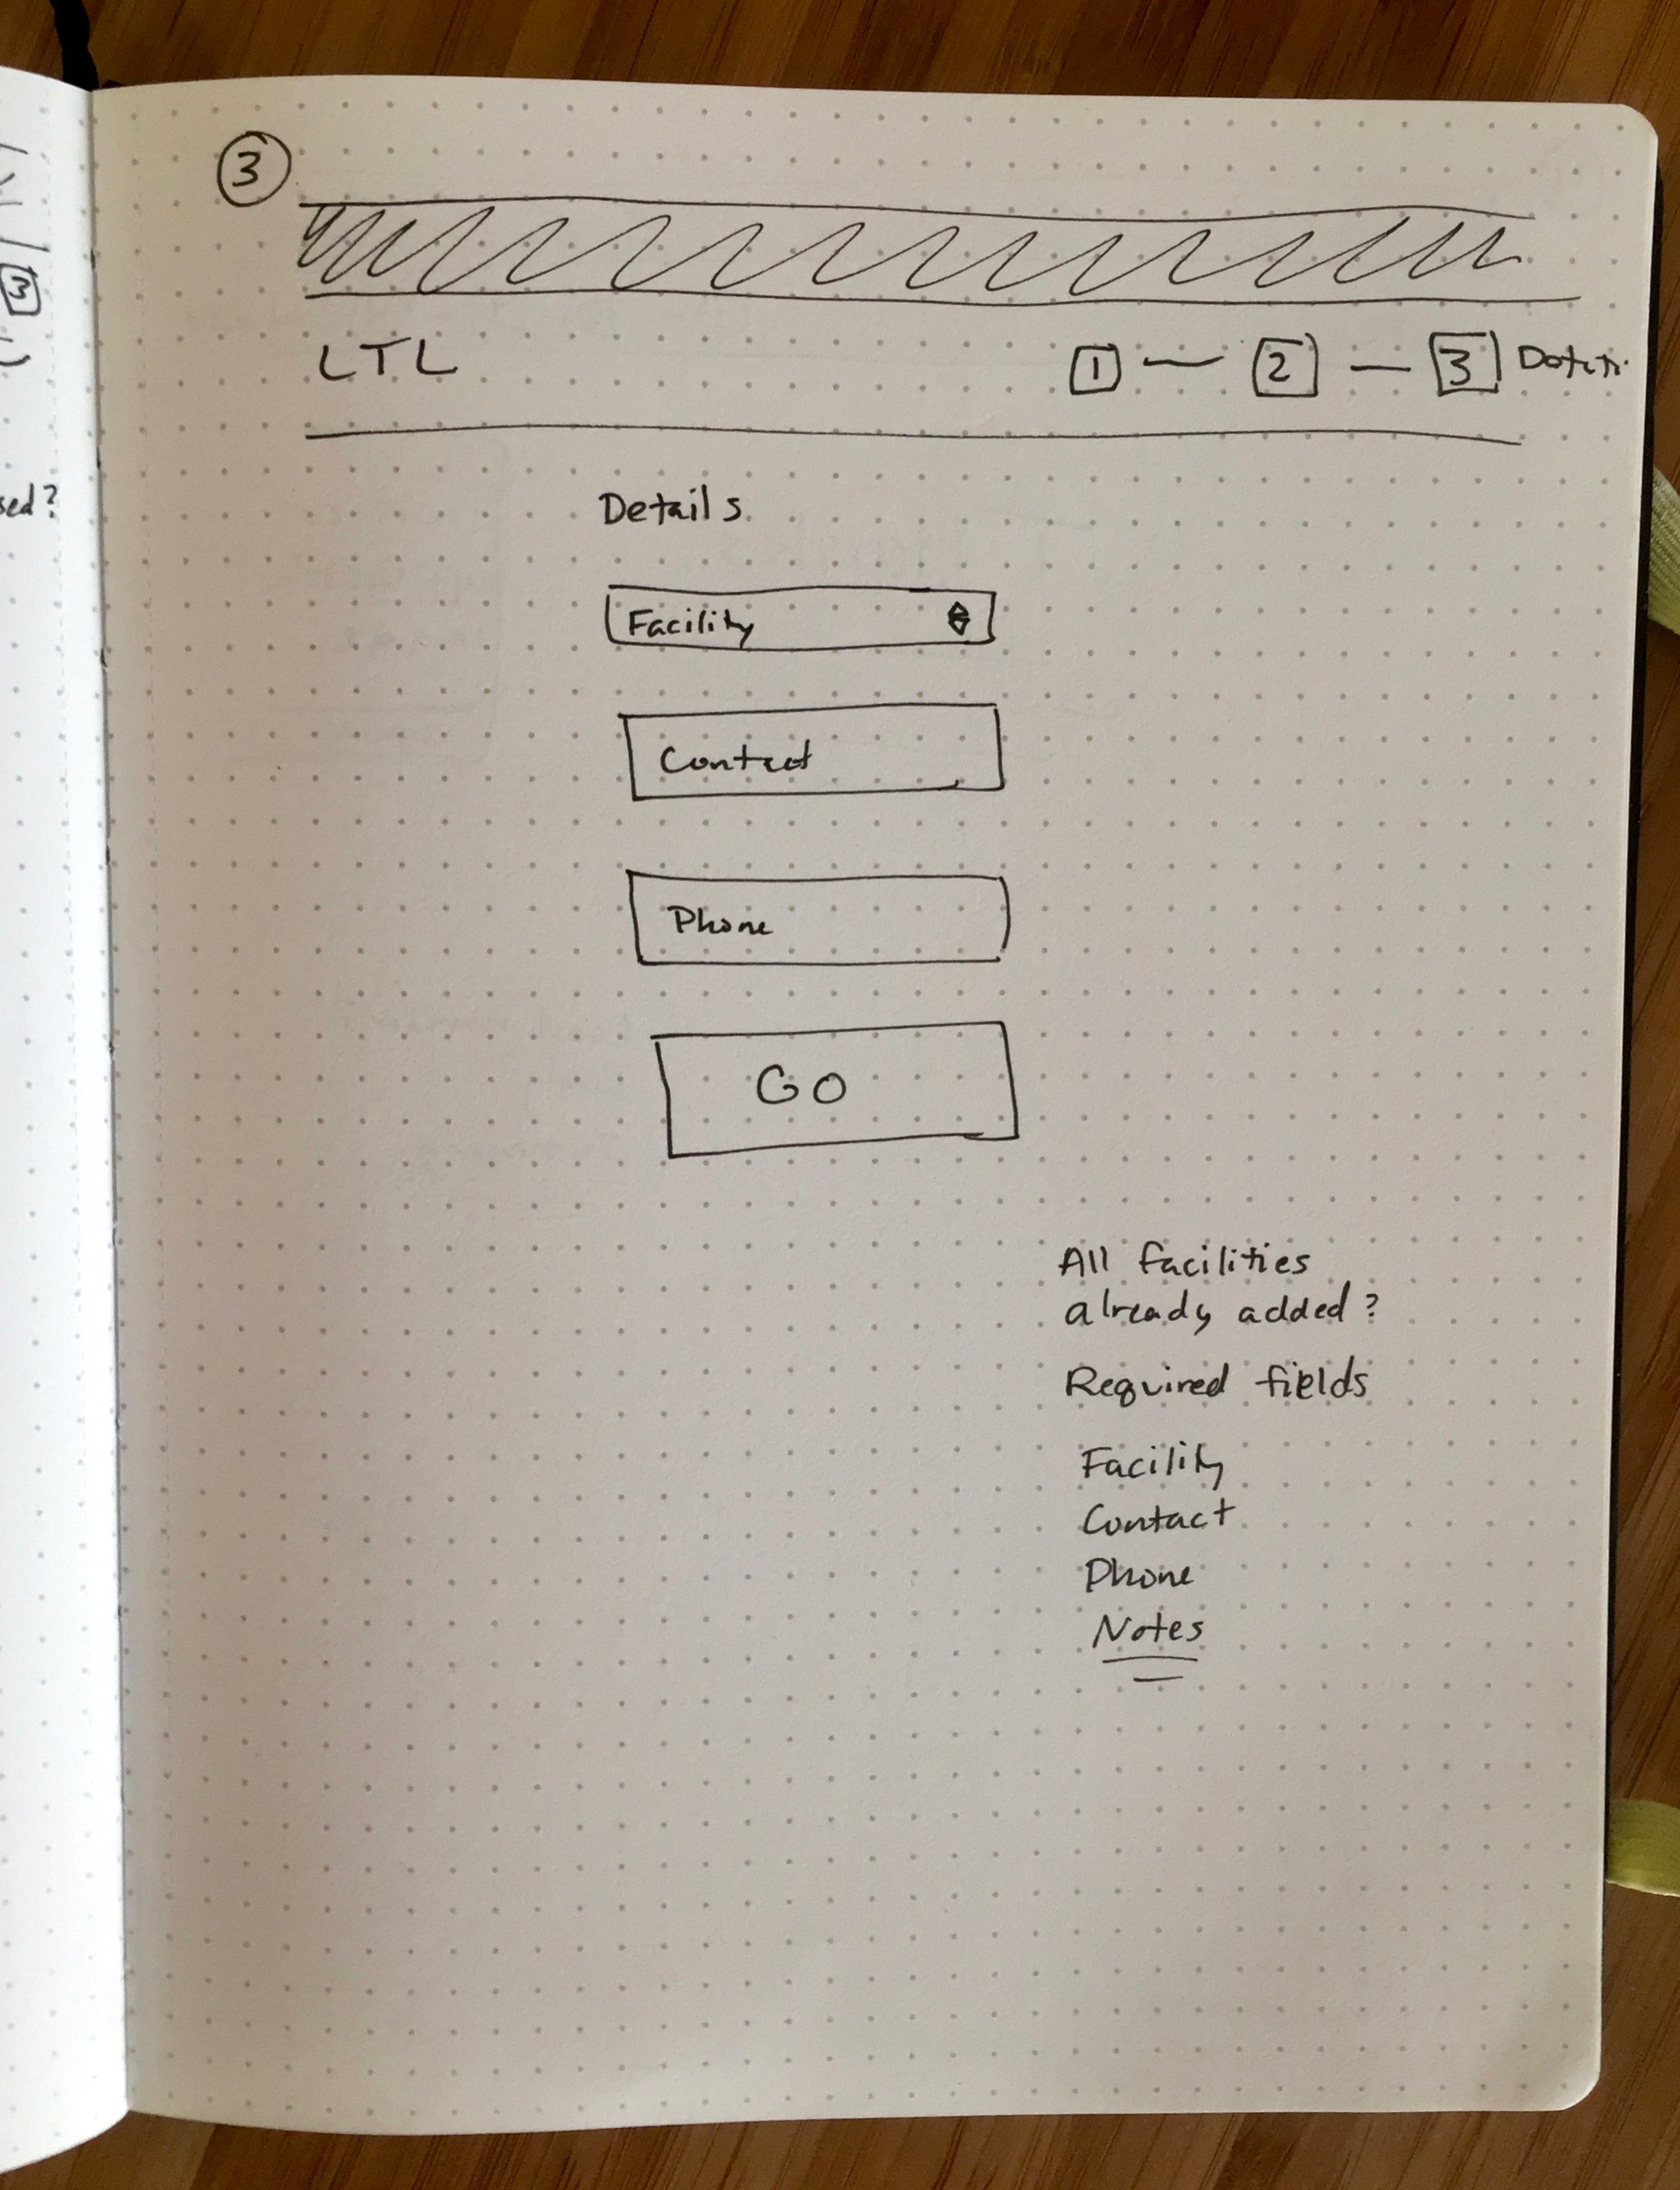 3
LTL
1 — 2 — 3
Details
Facility
Contact
Phone
GO
All facilities
already added?
Required fields
Facility
Contact
Phone
Notes
3
sed?